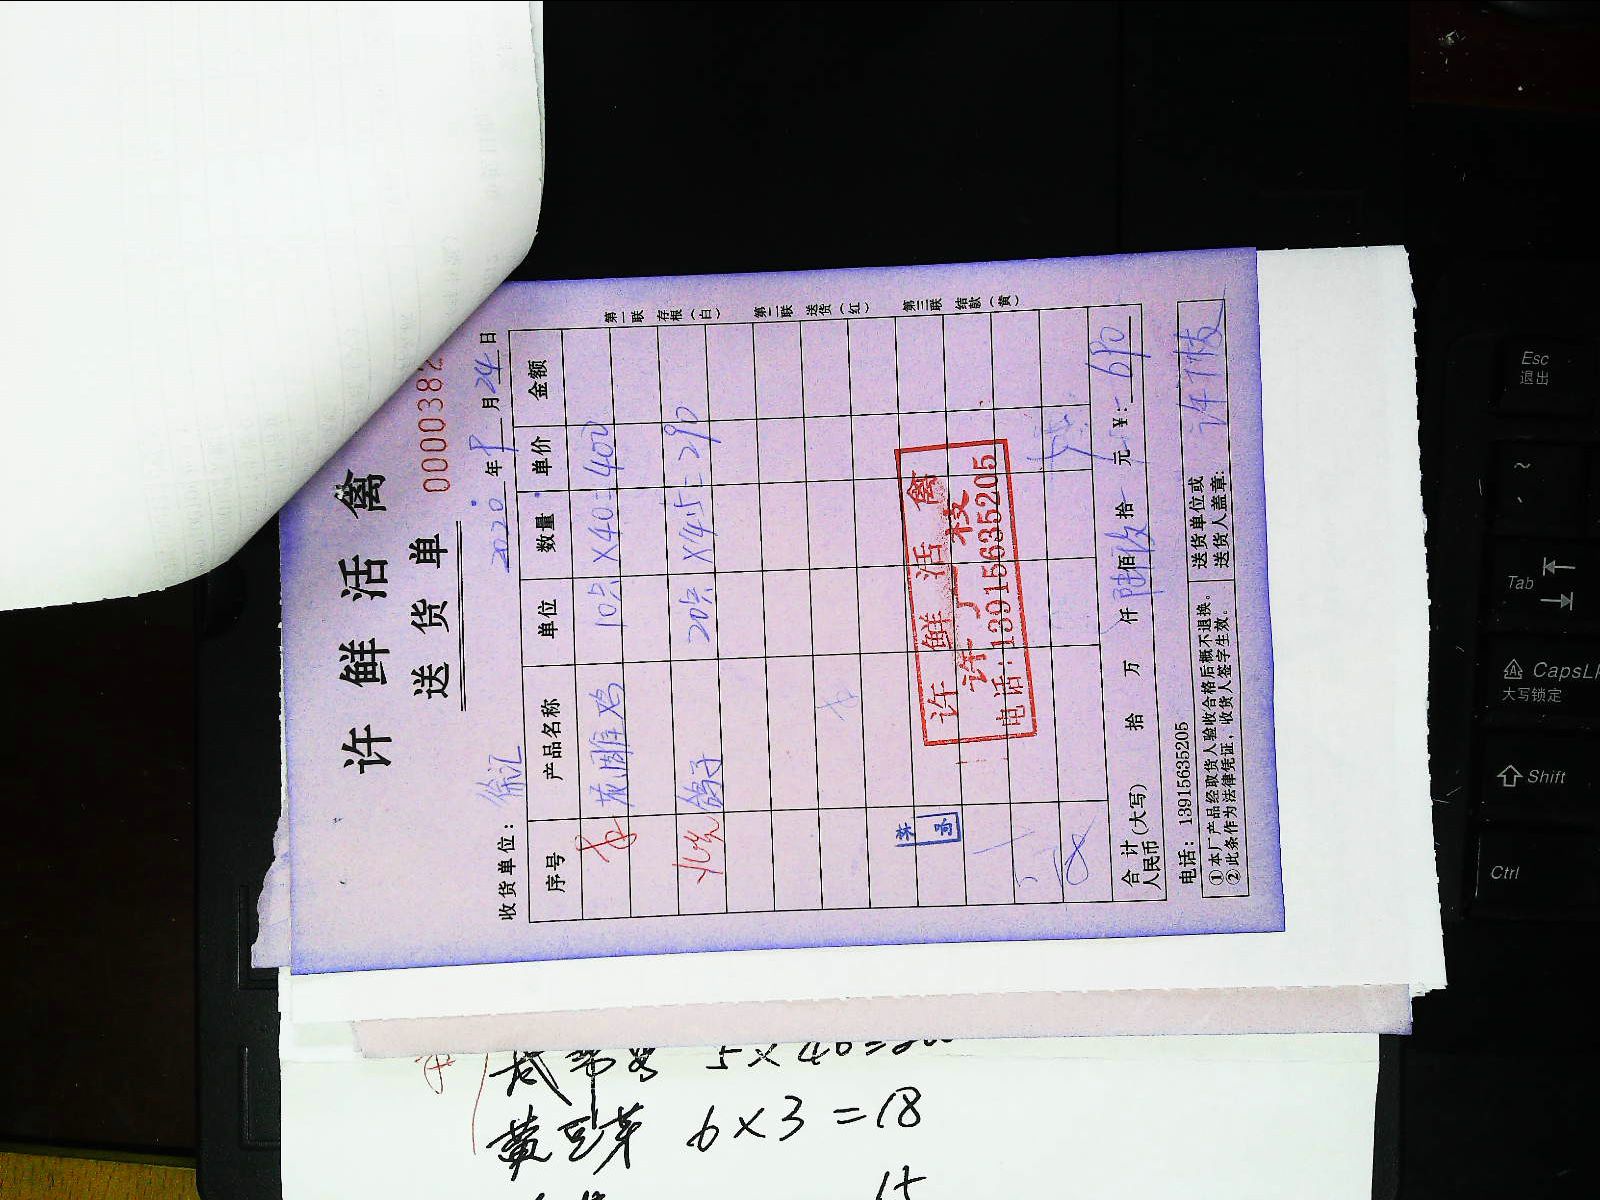 许鲜活禽
送货单
0000382
收货单位：徐汇 2020年9月24日
序号 产品名称 单位 数量 单价 金额
花雕鸡 10只 X40=400
鸽子 20只 X14.5=290
许鲜活禽
许丁枝
电话：13915635205
合计(大写)
人民币 拾 万 仟 陆佰 拾 元 ¥：690
电话：13915635205
①本厂产品经取货人验收合格后概不退换。
②此条作为法律凭证，收货人签字生效。
送货单位或
送货人盖章：许丁枝
第一联 存根（白）
第二联 送货（红）
第三联 结款（黄）
黄豆芽 6×3=18
15
Esc
退出
Tab
CapsL
大写锁定
Shift
Ctrl